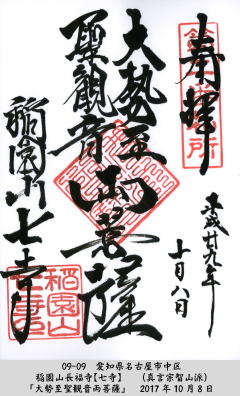 奉拝
平成廿九年
十月八日
大勢至
聖観音
両菩薩
稲園山七寺
稲園山
09-09　愛知県名古屋市中区
稲園山長福寺【七寺】　（真言宗智山派）
「大勢至聖観音両菩薩」　2017年10月8日